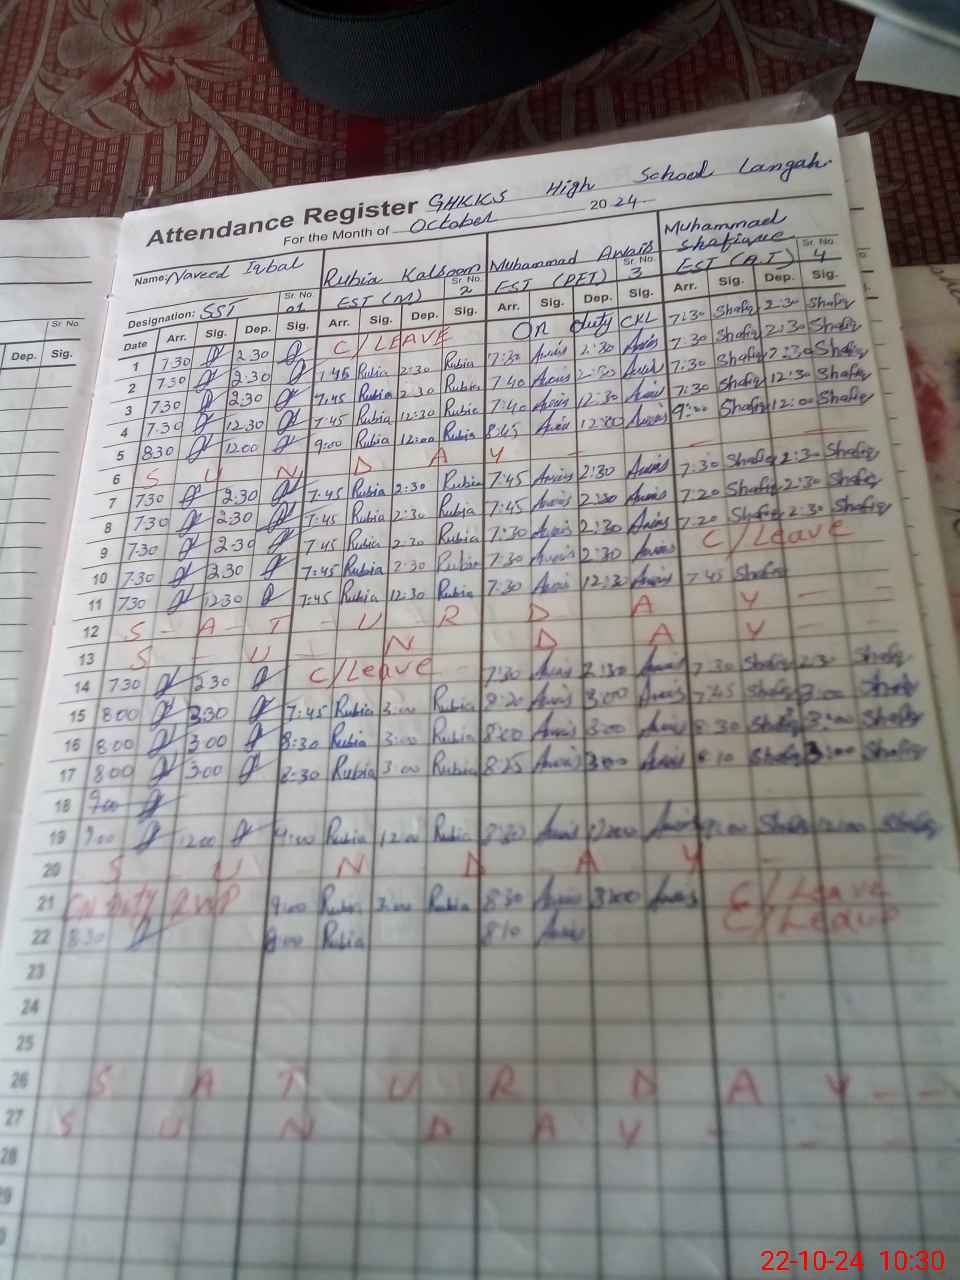 Attendance Register GHKKS High School Langah.
For the Month of October 2024
Name: Naveed Iqbal Rubia Kalsoom Muhammad Awais Muhammad Shafique
Designation: SST Sr. No. 01 EST (M) Sr. No. 2 EST (PET) Sr. No. 3 EST (A.T) Sr. No. 4
Date Arr. Sig. Dep. Sig. Arr. Sig. Dep. Sig. Arr. Sig. Dep. Sig. Arr. Sig. Dep. Sig.
1 7:30 2:30 C/LEAVE On duty CKL 7:30 Shafiq 2:30 Shafiq
2 7:30 2:30 7:45 Rubia 2:30 Rubia 7:30 Awais 2:30 Awais 7:30 Shafiq 2:30 Shafiq
3 7:30 2:30 7:45 Rubia 2:30 Rubia 7:40 Awais 2:30 Awais 7:30 Shafiq 2:30 Shafiq
4 7:30 12:30 7:45 Rubia 12:30 Rubia 7:40 Awais 12:30 Awais 7:30 Shafiq 12:30 Shafiq
5 8:30 12:00 9:00 Rubia 12:00 Rubia 8:45 Awais 12:00 Awais 9:00 Shafiq 12:00 Shafiq
6 S U N D A Y
7 7:30 2:30 7:45 Rubia 2:30 Rubia 7:45 Awais 2:30 Awais 7:30 Shafiq 2:30 Shafiq
8 7:30 2:30 7:45 Rubia 2:30 Rubia 7:45 Awais 2:30 Awais 7:20 Shafiq 2:30 Shafiq
9 7:30 2:30 7:45 Rubia 2:30 Rubia 7:30 Awais 2:30 Awais 7:20 Shafiq 2:30 Shafiq
10 7:30 2:30 7:45 Rubia 2:30 Rubia 7:30 Awais 2:30 Awais C/Leave
11 7:30 12:30 7:45 Rubia 12:30 Rubia 7:30 Awais 12:30 Awais 7:45 Shafiq
12 S - A - T - U R D A Y -
13 S - U - N D A Y - -
14 7:30 2:30 C/Leave 7:30 Awais 2:30 Awais 7:30 Shafiq 2:30 Shafiq
15 8:00 3:30 7:45 Rubia 3:00 Rubia 8:20 Awais 3:00 Awais 7:45 Shafiq 3:00 Shafiq
16 8:00 3:00 8:30 Rubia 3:00 Rubia 8:00 Awais 3:00 Awais 8:30 Shafiq 3:00 Shafiq
17 8:00 3:00 8:30 Rubia 3:00 Rubia 8:25 Awais 3:00 Awais 8:10 Shafiq 3:00 Shafiq
18 9:00
19 9:00 12:00 Rubia 12:00 Rubia 8:30 Awais Awais Shafiq 12:00 Shafiq
20 S U N D A Y - -
21 On Duty RWP 9:00 Rubia 3:00 Rubia 8:30 Awais 3:00 Awais C/Leave
22 8:30 8:00 Rubia 8:10 Awais C/Leave
23
24
25
26 S A T U R D A Y - -
27 S U N D A Y - - -
28
29
Sr. No
Dep. Sig.
22-10-24 10:30